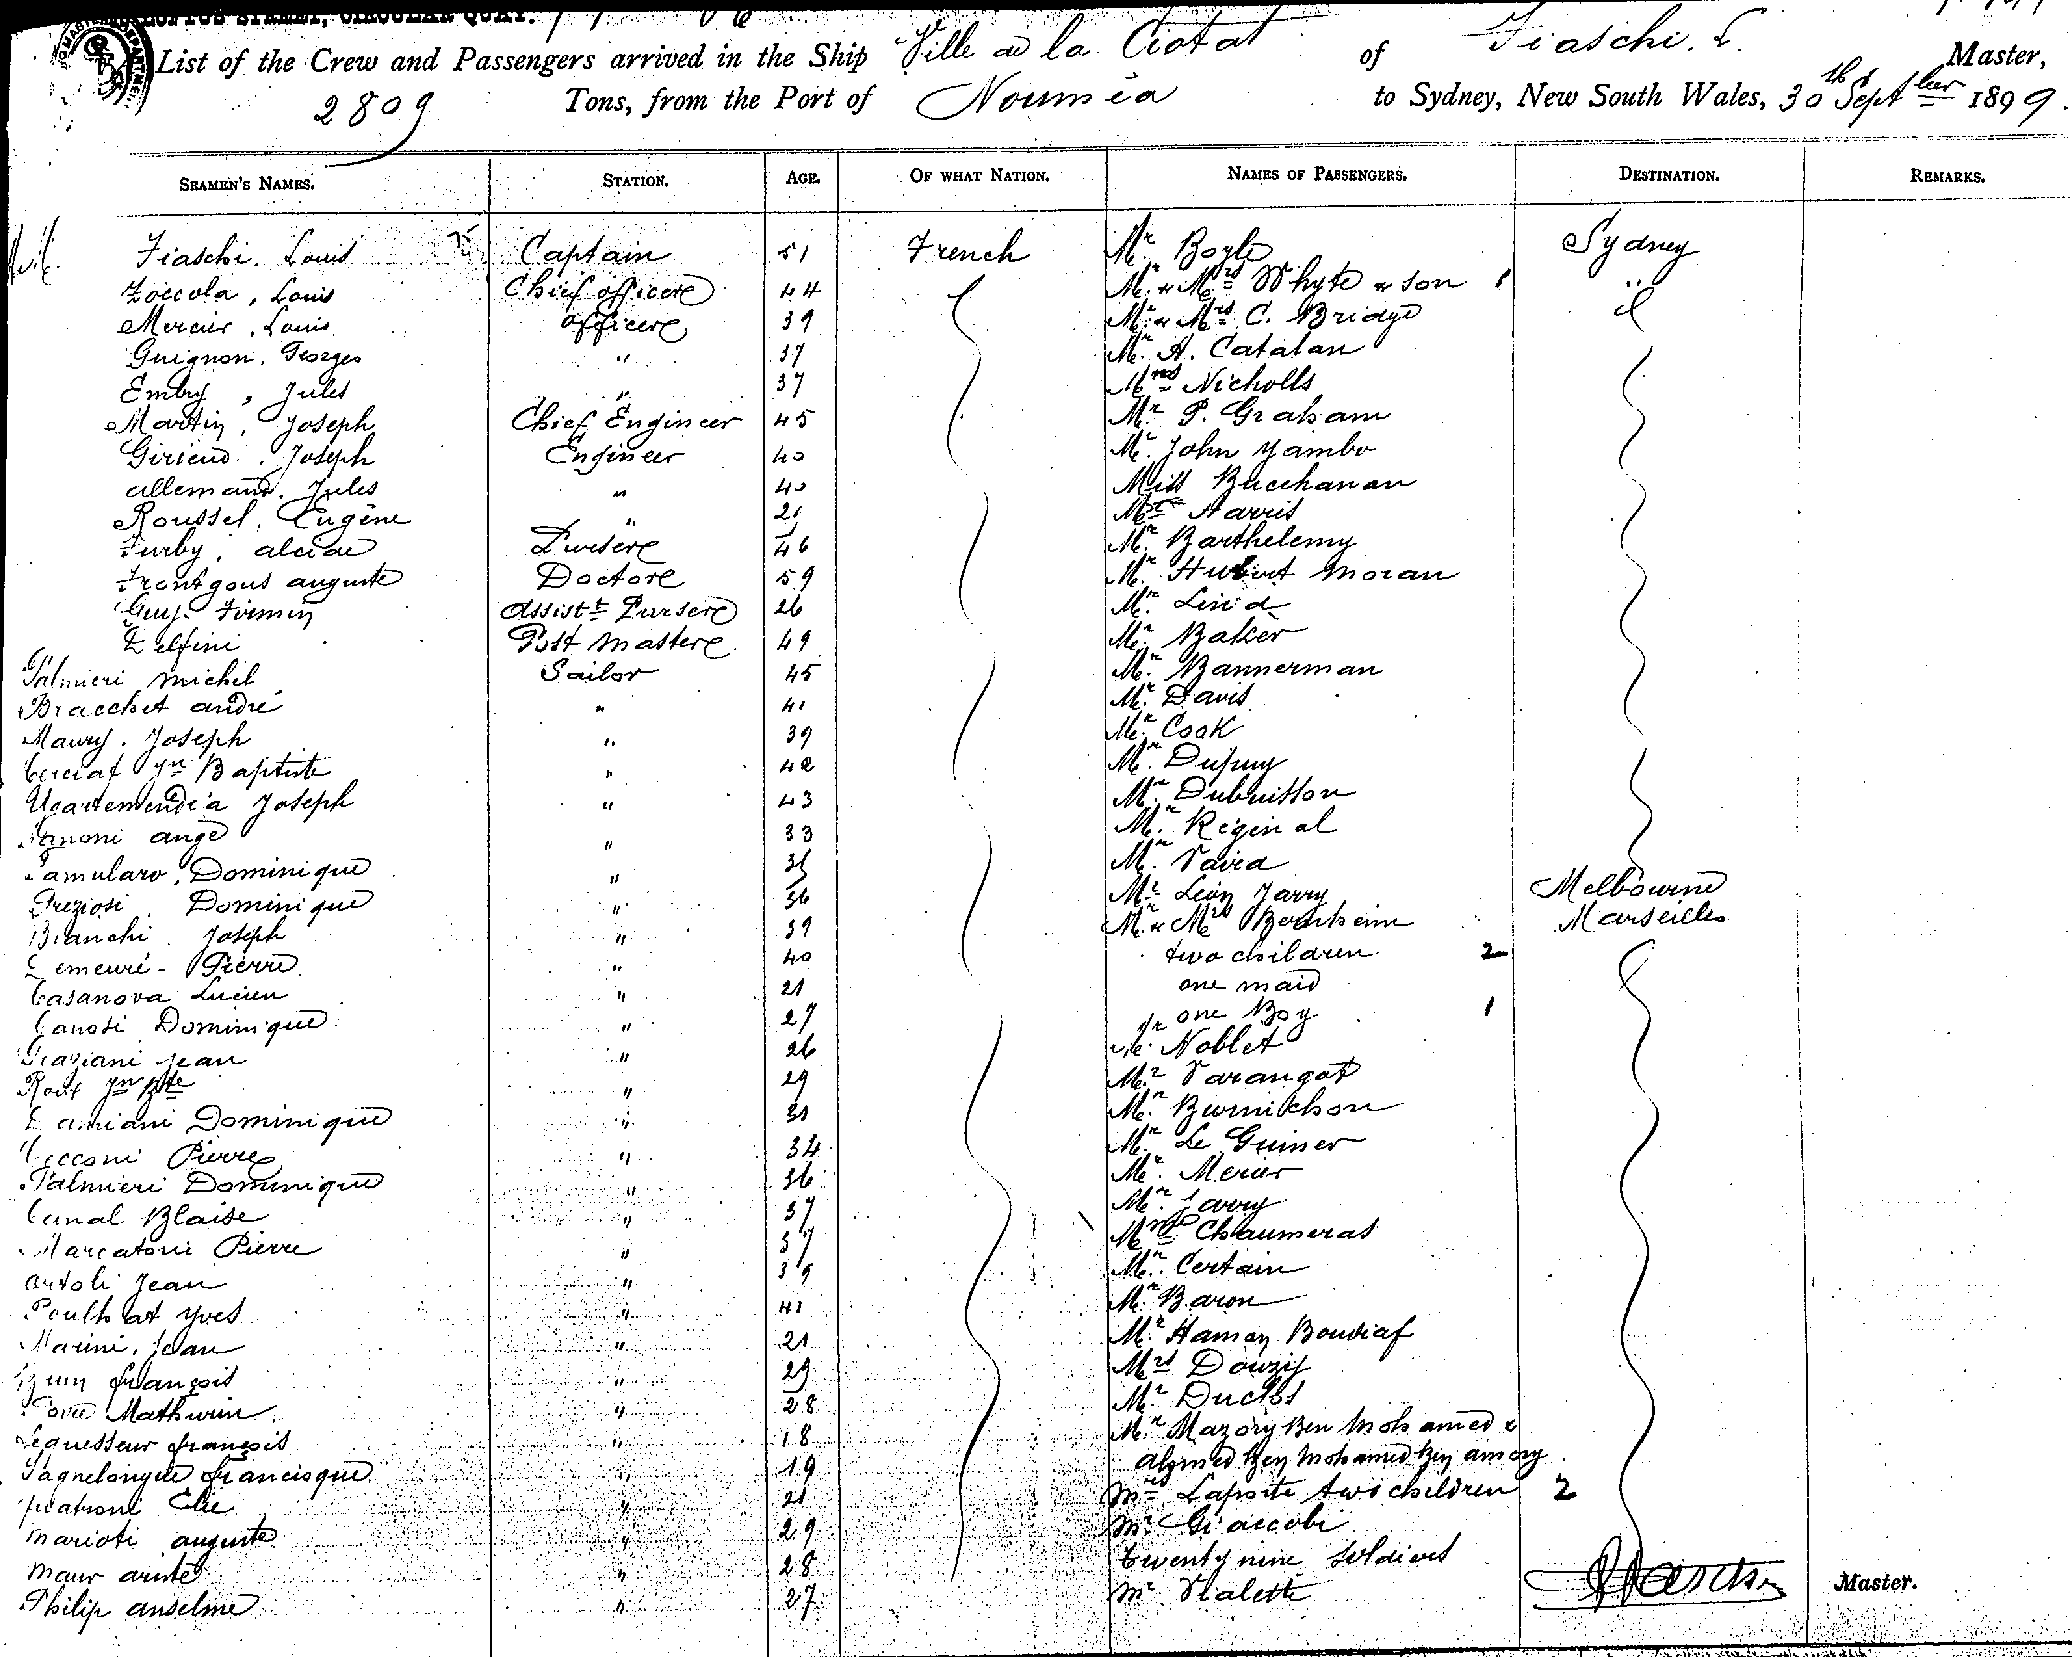 CIRCULAR QUAY.
List of the Crew and Passengers arrived in the Ship Ville de la Ciotat of Fiaschi. L. Master,
2809 Tons, from the Port of Nouméa to Sydney, New South Wales, 30th Septber 1899.
SEAMEN'S NAMES. STATION. AGE. OF WHAT NATION. NAMES OF PASSENGERS. DESTINATION. REMARKS.
Fiaschi. Louis Captain 51 French Mr. Boyle Sydney
Zoccola, Louis Chief officere 44 Mr. & Mrs Whyte & son 1
Mercier, Louis officere 39 Mr. & Mrs C. Bridge
Guignon. Georges " 37 Mr. A. Catalan
Embry, Jules " 37 Mrs Nicholls
Martin, Joseph Chief Engineer 45 Mr P. Graham
Giriend. Joseph Engineer 40 Mr. John Yambo
allemand. Jules " 40 Miss Bucchanan
Roussel. Eugène " 21 Harris
Furby, alcide Pursere 46 Mr. Barthelemy
auguste Doctore 59 Mr. Hubert Moran
Guy. Firmin Assistt Pursere 26 Mr.
Delfini Post Mastere 49 Mr. Baker
Palmieri Michel Sailor 45 Mr. Bannerman
Bracchet andré " 41 Mr. Davis
Maury. Joseph " 39 Mr. Cook
Jn Baptiste " 42 Mr. Dupuy
Ugartemendia Joseph " 43 Mr. Dubuisson
ange " 33 Mr. Réginal
Famularo, Dominique " 35 Mr. Vaira
Preziosi Dominique " 36 Mr Léon Jarry Melbourne
Bianchi Joseph " 39 Mr. & Mrs Bernheim Marseilles
Demeuré - Pierre " 40 two children 2
Casanova Lucien " 21 one maid
Canosi Dominique " 27 one Boy 1
Graziani Jean " 26 Mr. Noblet
Roux Jn Bte " 29 Mr Varangot
Damiani Dominique " 31 Mr. Burnichon
Cecconi Pierre " 34 Mr. Le Guiner
Palmieri Dominique " 36 Mr. Merier
Canal Blaise " 37 Mr. Jarry
Marcatoni Pierre " 37 Chaumeras
artoli Jean " 39 Mr. Certain
Poulhat Yves " 41 Mr. Baron
Marini. Jean " 21 Mr. Hamon Boudiaf
françois " 29 Mrs Douzy
Mathurin " 28 Mr. Duclos
Lequesseur françois " 18 Mr Mazory Ben Mohamed &
francisque " 19 ahmed Ben Mohamed Ben amory
Elie " 21 Mrs Laporte two children 2
Marioti auguste " 29 Mr Giaccobi
Maur " 28 twenty nine soldiers
Philip anselme " 27 Mr Vialette Master.